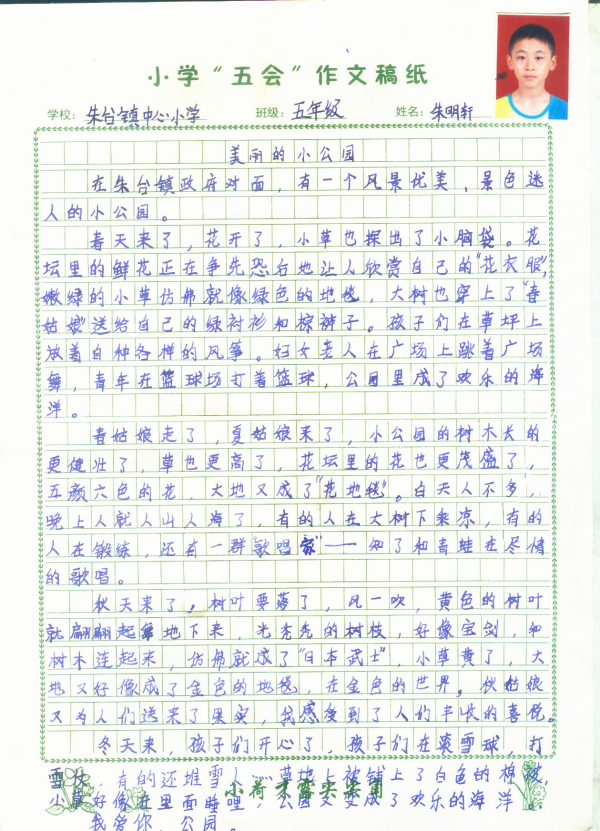 小学“五会”作文稿纸
学校：朱台镇中心小学 班级：五年级 姓名：朱明轩
美丽的小公园
在朱台镇政府对面，有一个风景优美、景色迷
人的小公园。
春天来了，花开了，小草也探出了小脑袋。花
坛里的鲜花正在争先恐后地让人欣赏自己的“花衣服”，
嫩绿的小草仿佛就像绿色的地毯，大树也穿上了“春
姑娘”送给自己的绿衬衫和棕裤子。孩子们在草坪上
放着各种各样的风筝。妇女老人在广场上跳着广场
舞，青年在篮球场打着篮球，公园里成了欢乐的海
洋。
春姑娘走了，夏姑娘来了，小公园的树木长的
更健壮了，草也更高了，花坛里的花也更茂盛了，
五颜六色的花，大地又成了“花地毯”。白天人不多，
晚上人就人山人海了，有的人在大树下乘凉，有的
人在锻练，还有一群“歌唱家”——知了和青蛙在尽情
的歌唱。
秋天来了，树叶要落了，风一吹，黄色的树叶
就翩翩起舞地下来，光秃秃的树枝，好像宝剑，和
树木连起来，仿佛就成了“日本武士”，小草黄了，大
地又好像成了金色的地毯，在金色的世界，秋姑娘
又为人们送来了果实，我感受到了人们丰收的喜悦。
冬天来，孩子们开心了，孩子们在滚雪球，打
雪仗，有的还堆雪人……草地上被铺上了白色的棉被，
小草好像在里面睡哩，公园又变成了欢乐的海洋。
小荷才露尖尖角
我爱你，公园。